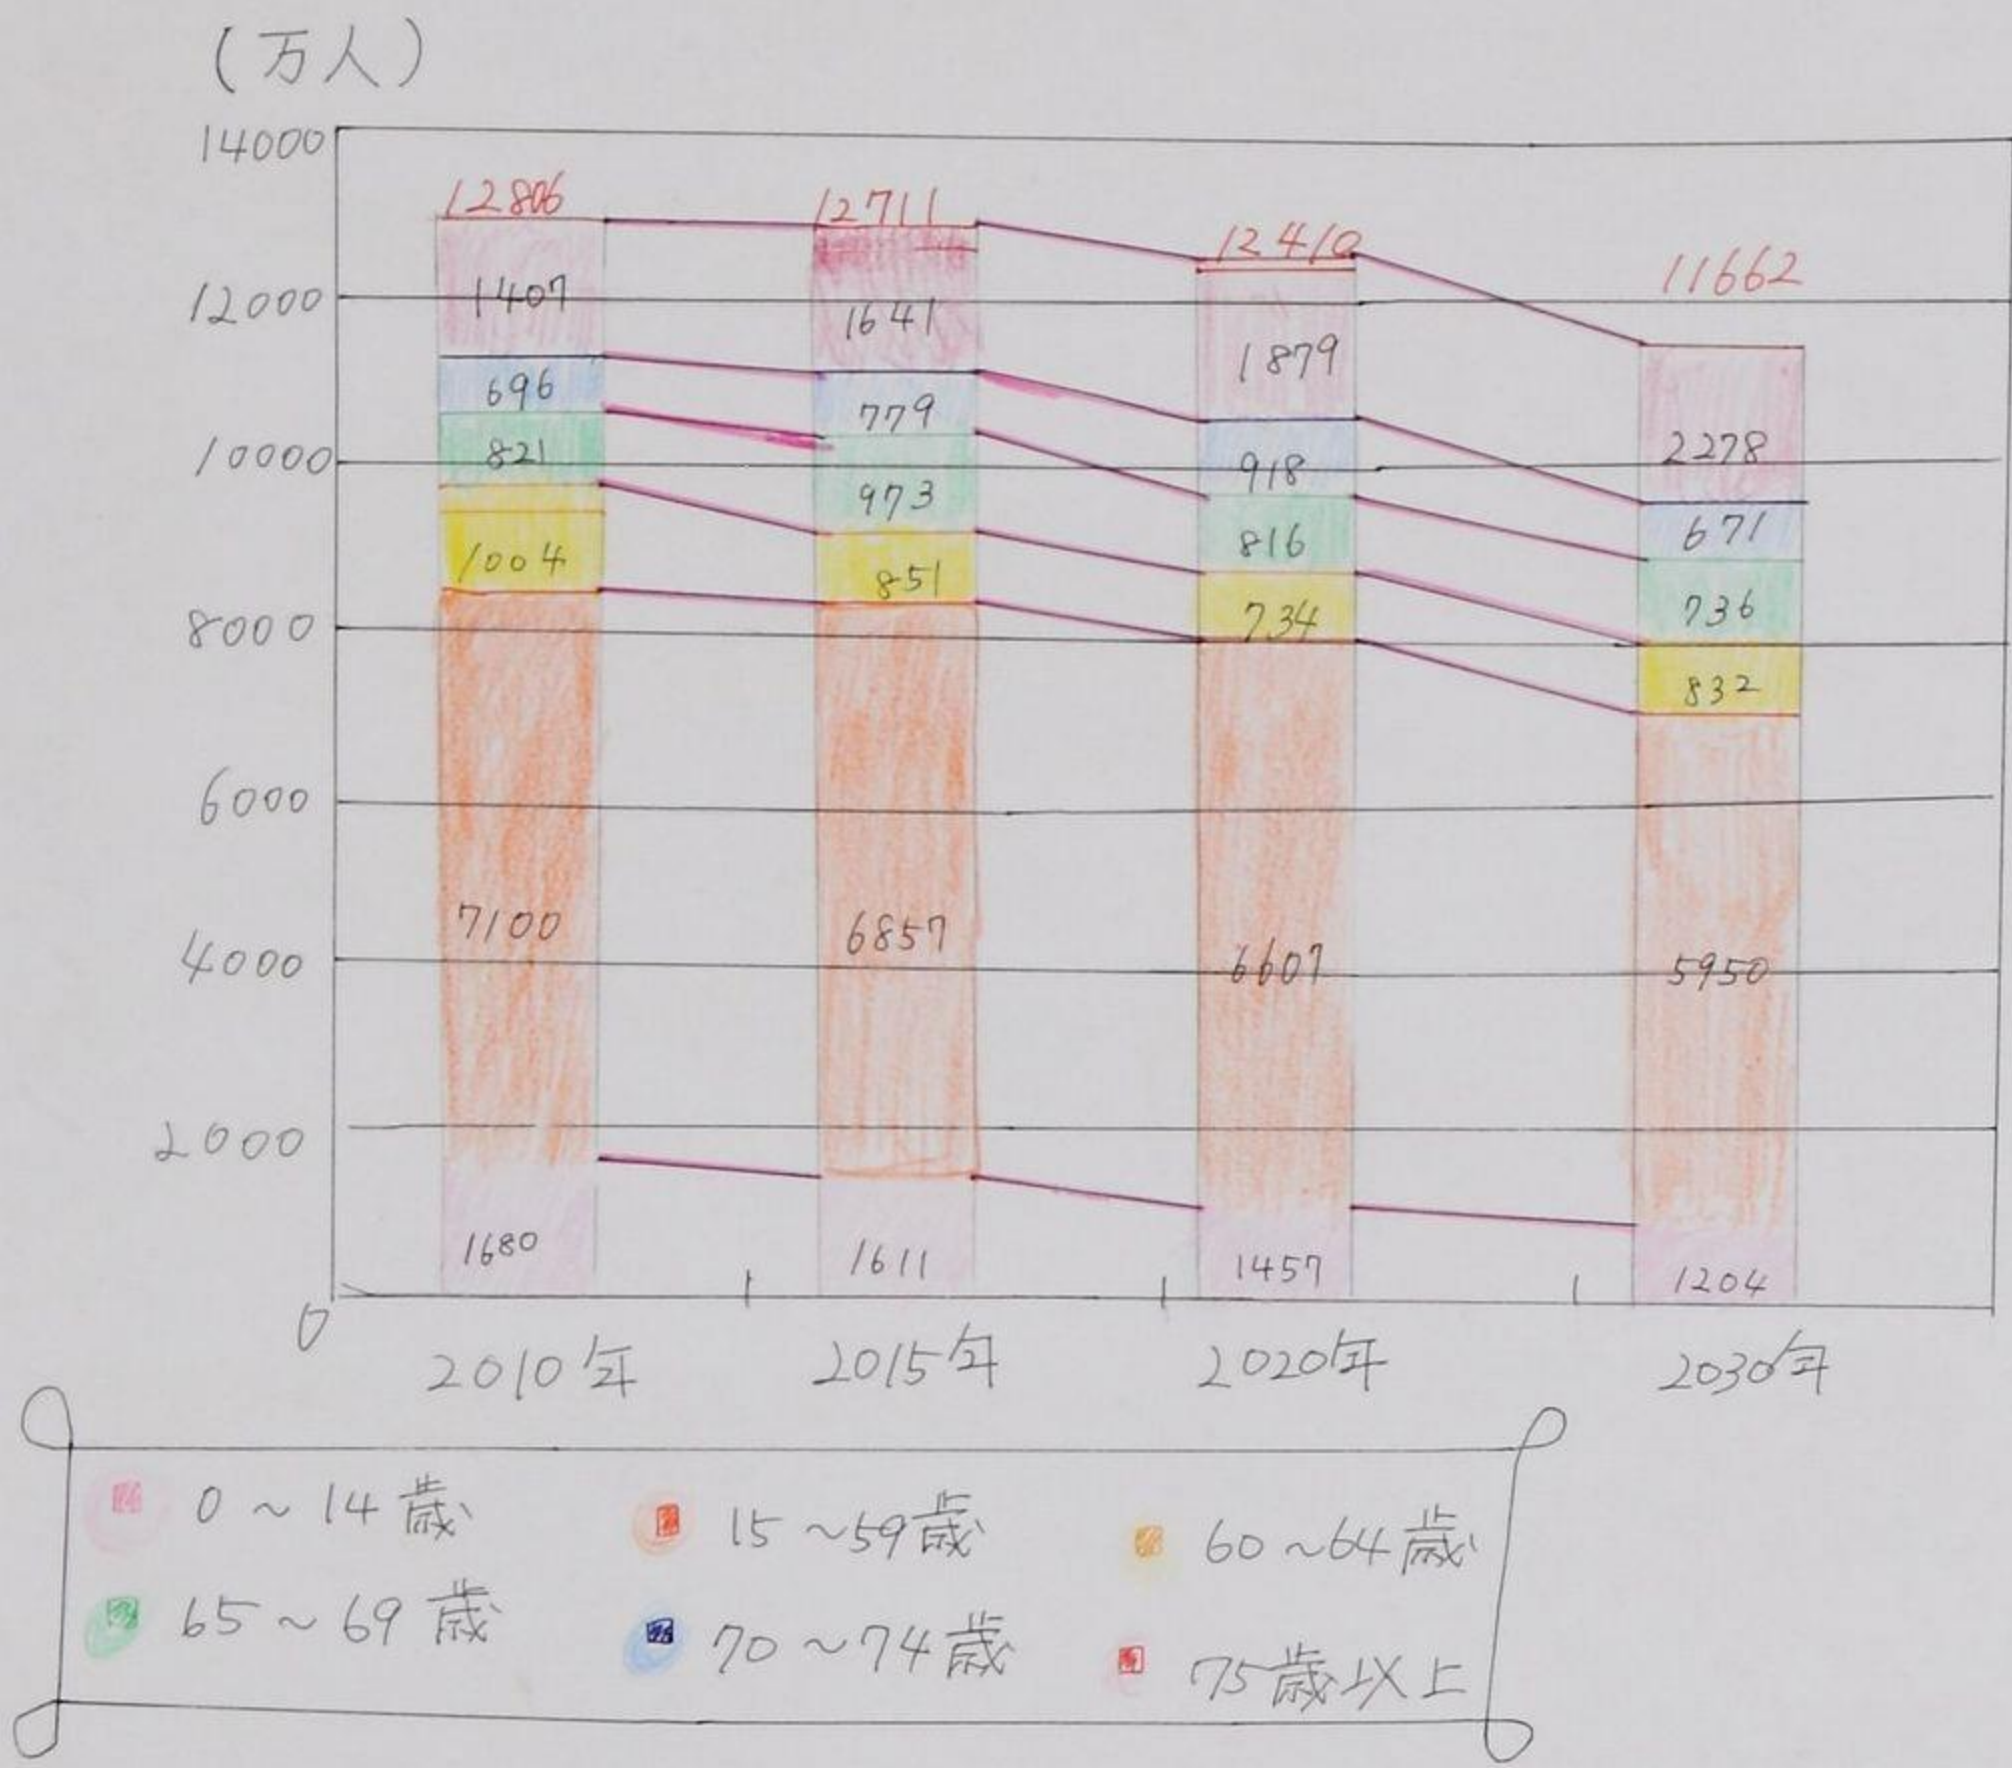 (万人)
14000
12000
10000
8000
6000
4000
2000
0
12806
1407
696
821
1004
7100
1680
12711
1641
779
973
851
6857
1611
12410
1879
918
816
734
6607
1457
11662
2278
671
736
832
5950
1204
2010年 2015年 2020年 2030年
0~14歳 15~59歳 60~64歳
65~69歳 70~74歳 75歳以上